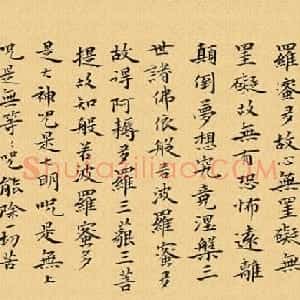 羅蜜多故心無罣礙無
罣礙故無有恐怖遠離
顛倒夢想究竟涅槃三
世諸佛依般若波羅蜜多
故得阿耨多羅三藐三菩
提故知般若波羅蜜多
是大神咒是明咒是無上
咒是無等々咒能除一切苦
Shufaziliao.com